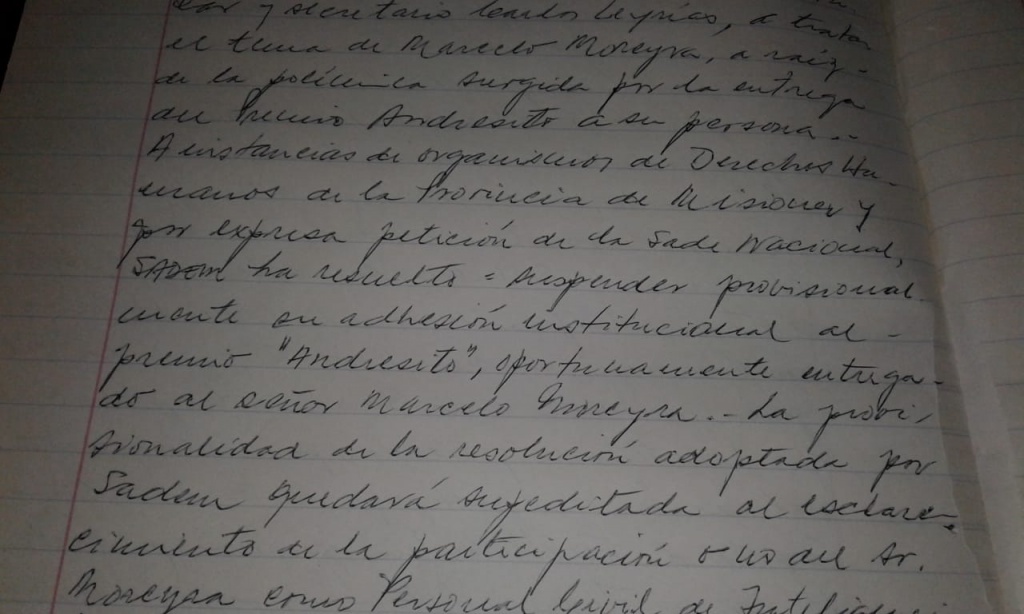 y secretario Carlos Leyrías, a tratar
el tema de Marcelo Moreyra, a raíz-
de la polémica surgida por la entrega
del Premio Andresito a su persona.-
A instancias de organismos de Derechos Hu-
manos de la Provincia de Misiones y
por expresa petición de la Sade Nacional,
SADEM ha resuelto = suspender provisional-
mente su adhesión institucional al -
premio "Andresito", oportunamente entrega-
do al señor Marcelo Moreyra.- La provi-
sionalidad de la resolución adoptada por
Sadem quedará sujeditada al esclare-
cimiento de la participación o no del Sr.
Moreyra como Personal Civil de Inteligenci